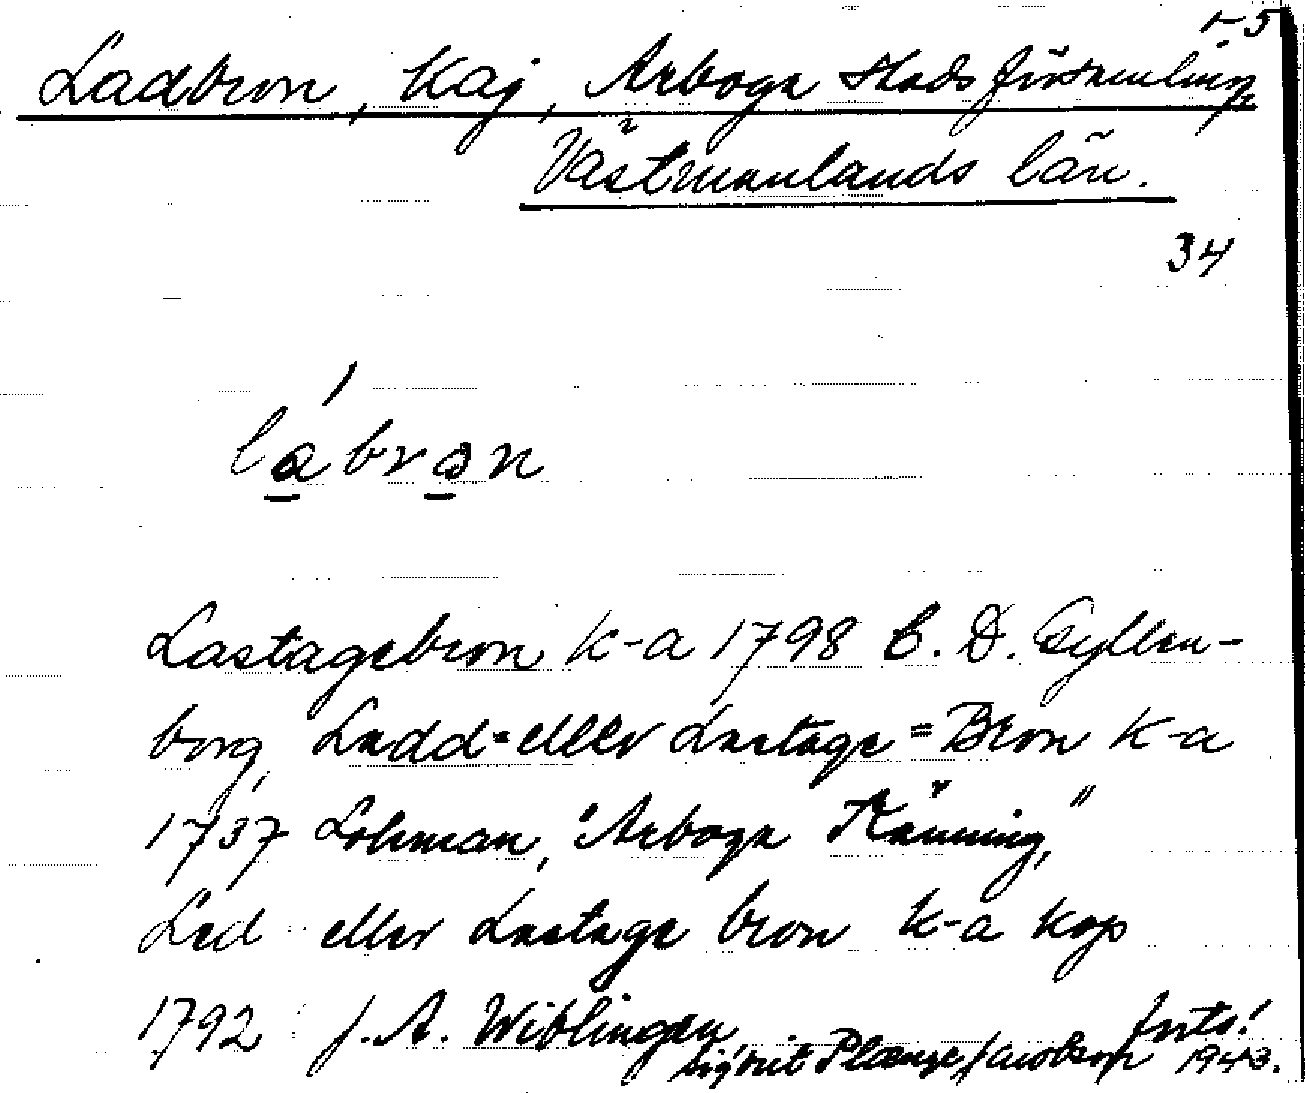 1-5
Ladbron, Kaj, Arboga stadsförsamling,
Västmanlands län.
34
lábran
Lastagebron k-a 1798 C. D. Gyllen-
borg, Ladd- eller Lastage=Bron k-a
1737 Lohman, "Arboga Känning,"
Lad eller Lastage bron k-a kop
1792 J. A. Wiblingen, forts!
Sigurit Plænge Jacobson 1943.